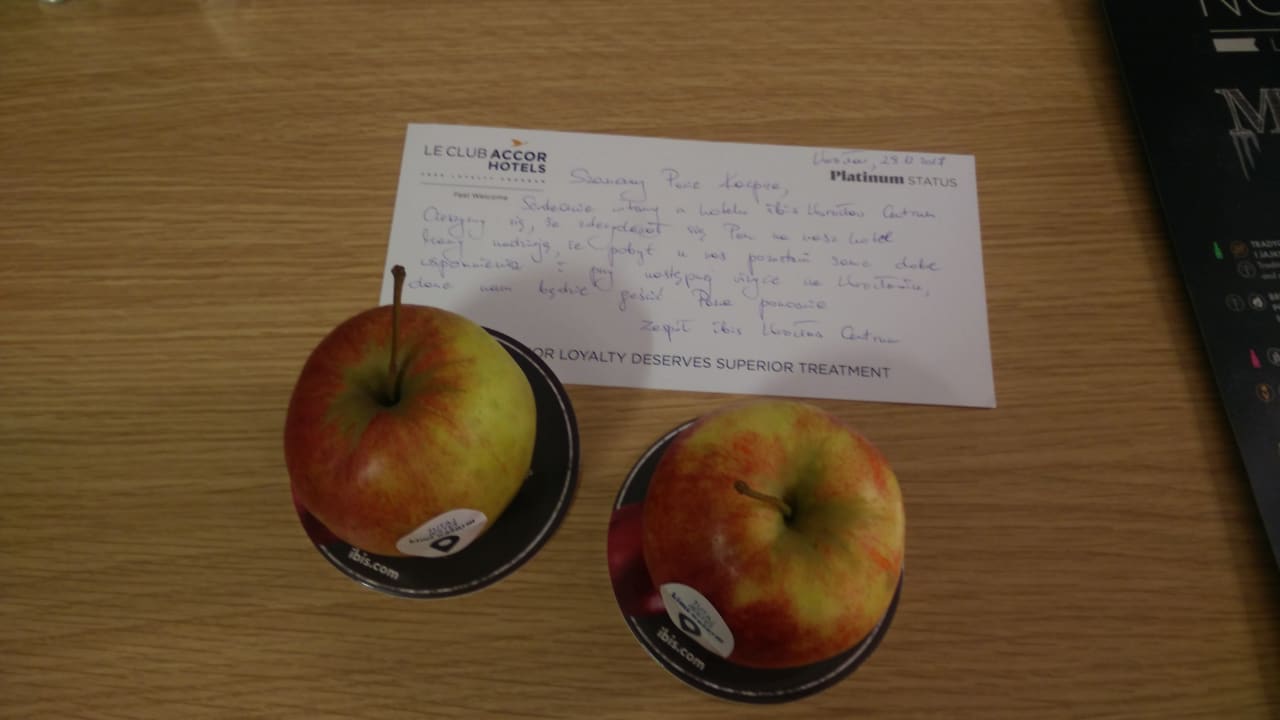 LE CLUB ACCOR
HOTELS
Feel Welcome
Wrocław, 29.12.2017
Platinum STATUS
Szanowny Panie Kacprze,
Serdecznie witamy w hotelu ibis Wrocław Centrum
Cieszymy się, że zdecydował się Pan na nasz hotel
Mamy nadzieję, że pobyt u nas pozostawi same dobre
wspomnienia i przy następnej wizycie we Wrocławiu,
dane nam będzie gościć Pana ponownie
Zespół ibis Wrocław Centrum
OR LOYALTY DESERVES SUPERIOR TREATMENT
ibis.com
ibis.com